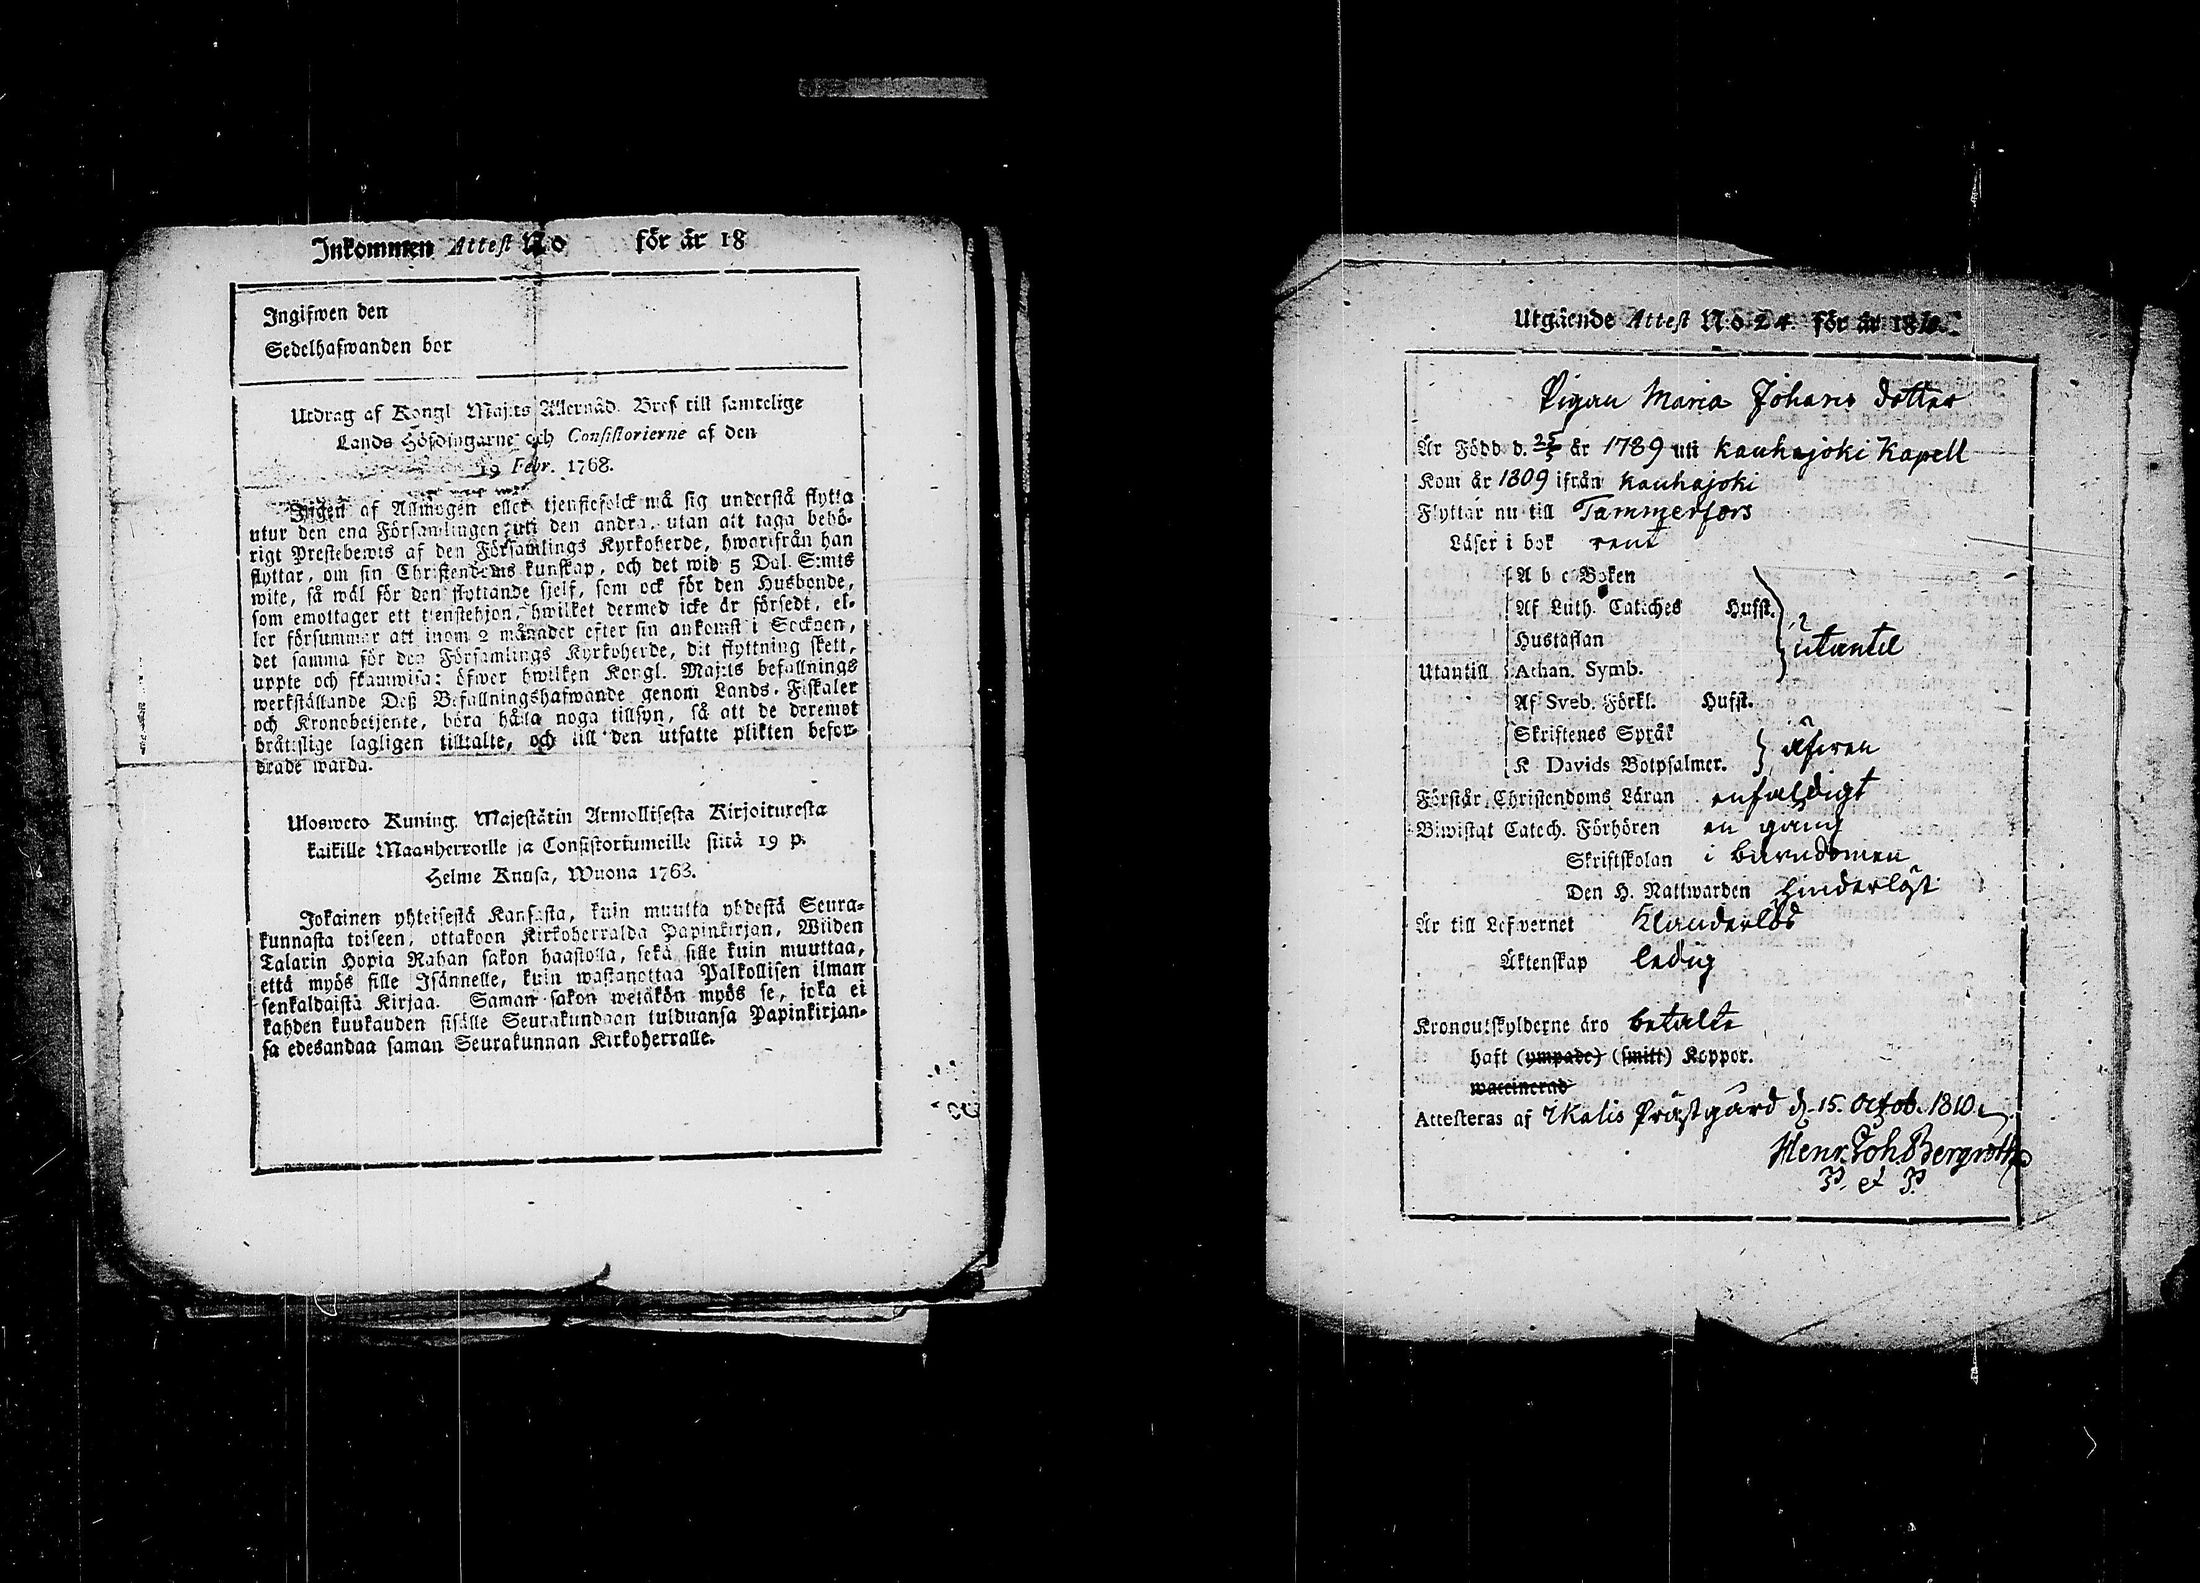 Inkommen Attest N:o för år 18
Ingifwen den
Sedelhafwanden bor
Utdrag af Kongl. Maj:ts Allernåd. Bref till samtelige
Lands Höfdingarne och Consistorierne af den
19 Febr. 1768.
Ingen af Allmogen eller tjenstefolck må sig understå flytta
utur den ena Församlingen uti den andra, utan att taga behö-
rigt Prestebewis af den Församlings Kyrkoherde, hworifrån han
flyttar, om sin Christendoms kunskap, och det wid 5 Dal. S:mts
wite, så wäl för den flyttande sjelf, som ock för den Husbonde,
som emottager ett tjenstehjon, hwilket dermed icke är försedt, el-
ler försummar att inom 2 månader efter sin ankomst i Socknen,
det samma för den Församlings Kyrkoherde, dit flyttning skett,
uppte och framwisa: öfwer hwilken Kongl. Maj:ts befallnings
werkställande Deß Befallningshafwande genom Lands-Fiskaler
och Kronobetjente, böra hålla noga tillsyn, så att de deremot
bråttslige lagligen tilltalte, och till den utsatte plikten befor-
drade warda.
Ulosweto Kuning. Majestätin Armollisesta Kirjoituxesta
kaikille Maanherroille ja Consistoriumeille siitä 19 p.
Helme Kuusa, Wuona 1768.
Jokainen yhteisestä Kansasta, kuin muutta yhdestä Seura-
kunnasta toiseen, ottakoon Kirkoherralda Papinkirjan, Wiiden
Talarin Hopia Rahan sakon haastolla, sekä sille kuin muuttaa,
että myös sille Isännelle, kuin wastanottaa Palkollisen ilman
senkaldaista Kirjaa. Saman sakon wetäkön myös se, joka ei
kahden kuukauden sisälle Seurakundaan tulduansa Papinkirjan-
sa edesandaa saman Seurakunnan Kirkoherralle.
Utgående Attest N:o 24. för år 1810.
Pigan Maria Johans dotter
Är Född d. 25/5 år 1789 uti Kauhajoki Kapell
Kom år 1809 ifrån Kauhajoki
Flyttar nu till Tammerfors
Läser i bok rent
A b c Boken
Af Luth. Cateches Hufst.
Hustaflan utantil
Utantill Athan. Symb.
Af Sveb. Förkl. Hufst.
Skriftenes Språk
K Davids Botpsalmer. äfwen
Förstår Christendoms Läran enfaldigt
Biwistat Catech. Förhören en gång
Skriftskolan i barndomen
Den H. Nattwarden hinderlöst
Är till Lefwernet Klanderlös
Äktenskap ledig
Kronoutskylderne äro betalte
haft (ympade) (smitt) Koppor.
waccinerad
Attesteras af Ikalis Prästgård d. 15. Octob. 1810.
Henr. Joh. Bergroth
P. et P.